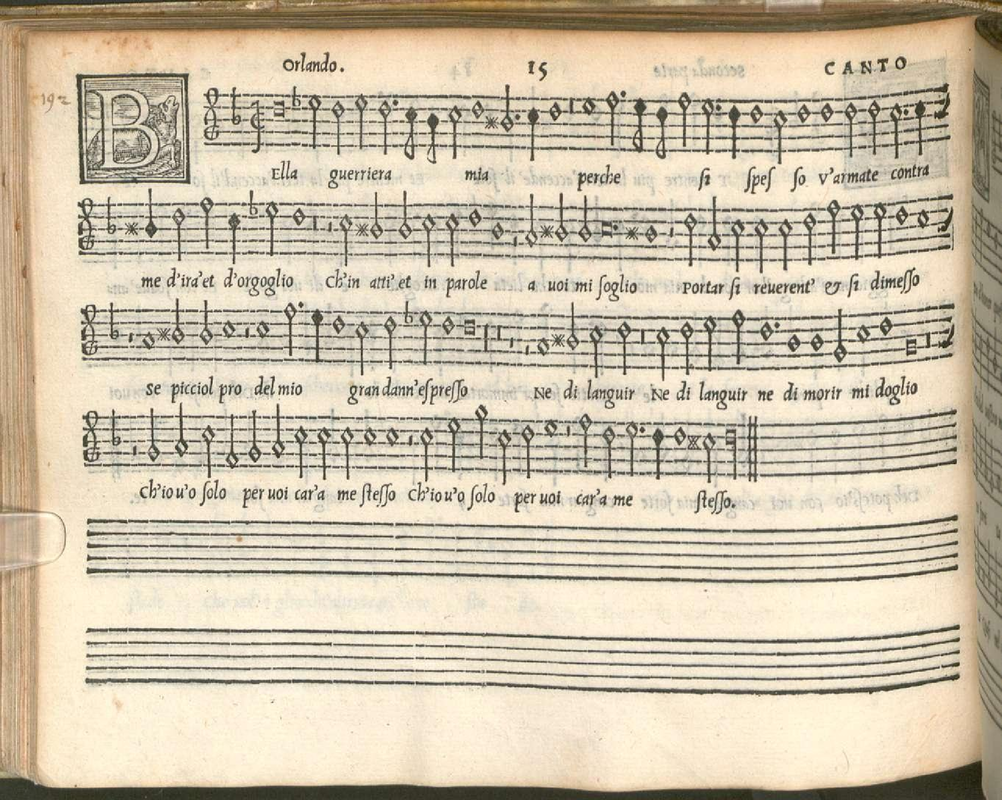 Orlando. 15 CANTO
192
BElla guerriera mia perche si spes so v'armate contra
me d'ira'et d'orgoglio Ch'in atti et in parole a voi mi soglio Portar si reuerent' & si dimesso
Se picciol pro del mio gran dann'espresso Ne di languir Ne di languir ne di morir mi doglio
Ch'io v'o solo per uoi car'a me stesso Ch'io v'o solo per uoi car'a me stesso.